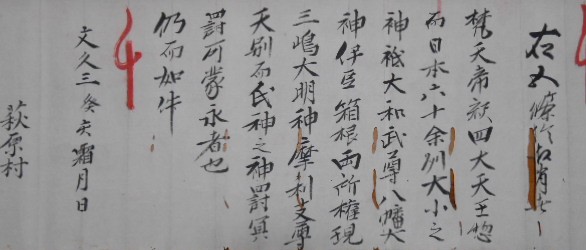 右五條於相背者
梵天帝釈四大天王惣
而日本六十余州大小之
神祇大和武尊八幡大
神伊豆箱根両所権現
三嶋大明神摩利支尊
天別而氏神之神罰冥
罰可蒙永者也
仍而如件
文久三癸亥霜月日
萩原村